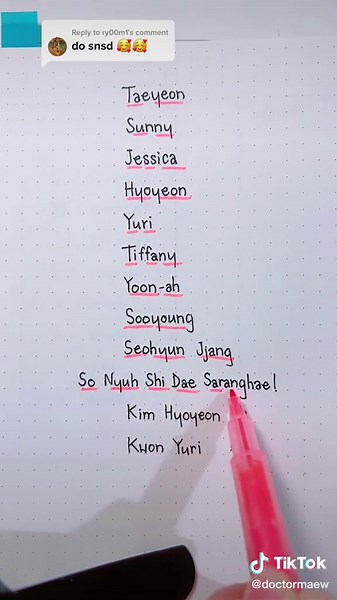 Reply to ry00m1's comment
do snsd 🥰🥰
Taeyeon
Sunny
Jessica
Hyoyeon
Yuri
Tiffany
Yoon-ah
Sooyoung
Seohyun Jjang
So Nyuh Shi Dae Saranghae!
Kim Hyoyeon
Kwon Yuri
TikTok
@doctormaew